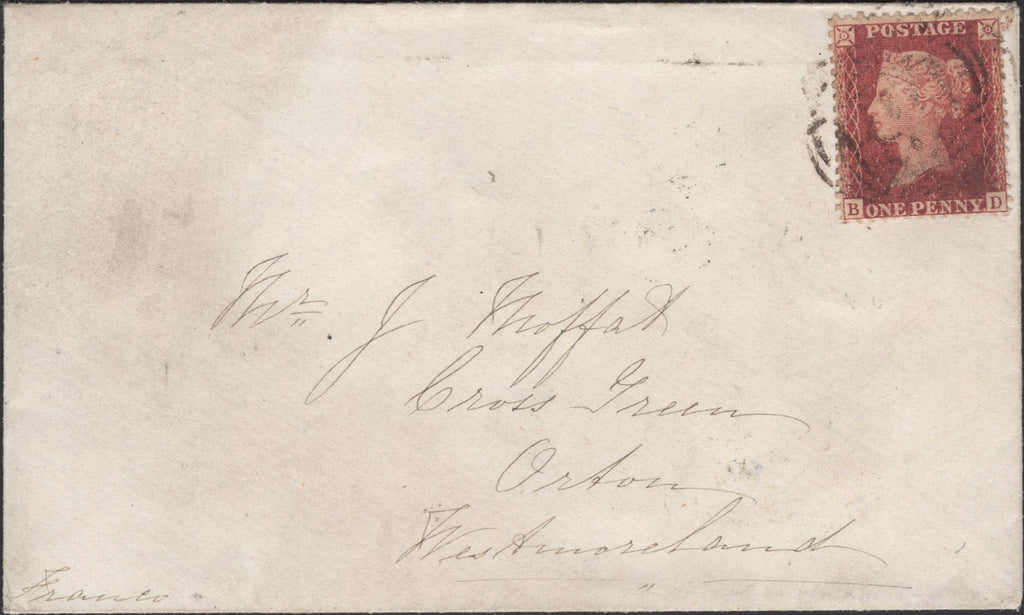 POSTAGE
B ONE PENNY D
Mr J Moffat
Cross Green
Orton
Westmoreland
Franco